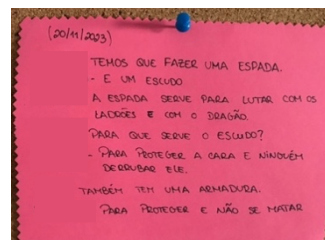 (20/11/2023)
TEMOS QUE FAZER UMA ESPADA.
- E UM ESCUDO
A ESPADA SERVE PARA LUTAR COM OS
LADRÕES E COM O DRAGÃO.
PARA QUE SERVE O ESCUDO?
- PARA PROTEGER A CARA E NINGUÉM
DERRUBAR ELE.
TAMBÉM TEM UMA ARMADURA.
PARA PROTEGER E NÃO SE MATAR